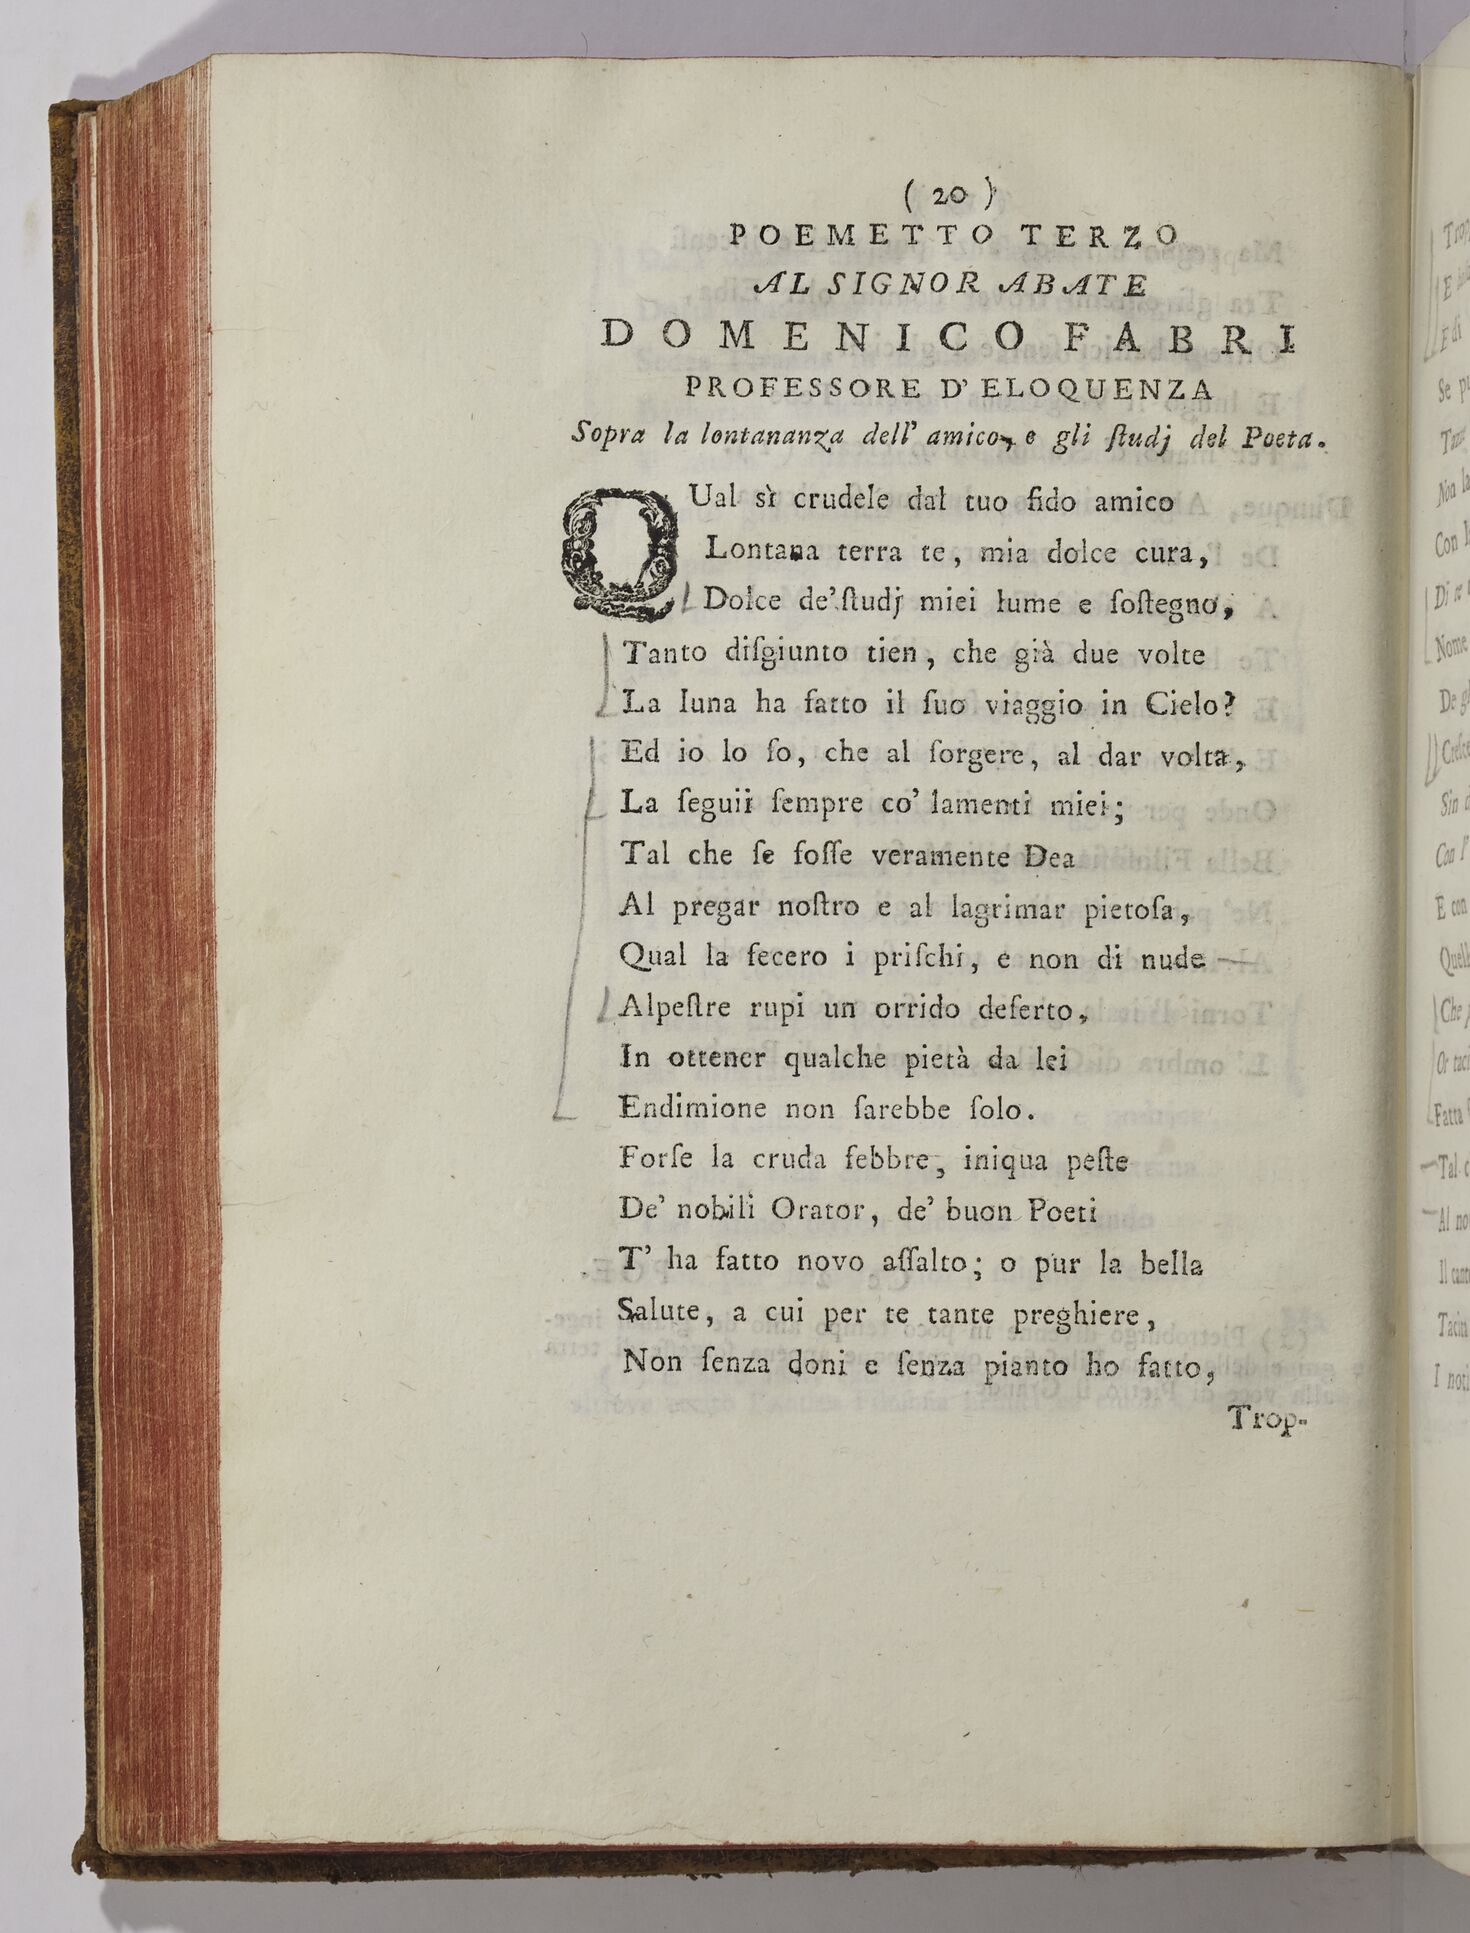 ( 20 )
POEMETTO TERZO
AL SIGNOR ABATE
DOMENICO FABRI
PROFESSORE D' ELOQUENZA
Sopra la lontananza dell' amico, e gli ſtudj del Poeta.
QUal sì crudele dal tuo fido amico
Lontana terra te, mia dolce cura,
Dolce de' ſtudj miei lume e ſoſtegno,
Tanto diſgiunto tien, che già due volte
La luna ha fatto il ſuo viaggio in Cielo?
Ed io lo ſo, che al ſorgere, al dar volta,
La ſeguii ſempre co' lamenti miei;
Tal che ſe foſſe veramente Dea
Al pregar noſtro e al lagrimar pietoſa,
Qual la fecero i priſchi, e non di nude
Alpeſtre rupi un orrido deſerto,
In ottener qualche pietà da lei
Endimione non ſarebbe ſolo.
Forſe la cruda febbre, iniqua peſte
De' nobili Orator, de' buon Poeti
T' ha fatto novo aſſalto; o pur la bella
Salute, a cui per te tante preghiere,
Non ſenza doni e ſenza pianto ho fatto,
Trop-